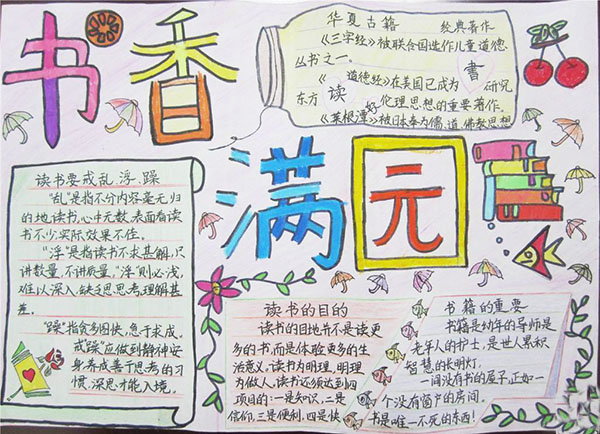 书香
满园
华夏古籍 经典著作
《三字经》被联合国选作儿童道德
丛书之一.
《道德经》在美国已成为 書 研究
东方 读 好 伦理思想的重要著作.
《菜根谭》被日本奉为儒、道、佛教思想
读书要戒乱、浮、躁
"乱"是指不分内容毫无归
的地读书,心中无数,表面看读
书不少实际效果不佳.
"浮"是指读书不求甚解,只
讲数量,不讲质量,"浮"则必浅,
难以深入,缺乏思思考,理解甚
差.
"躁"指贪多图快,急于求成,
戒"躁"应做到静神安
身养成善于思考的习
惯,深思才能入境.
读书的目的
读书的目地并不是读更
多的书,而是体验更多的生
活意义,读书为明理,明理
为做人,读书还须达到四
项目的:一是知识,二是
信仰,三是便利,四是快
书籍的重要
书籍是幼年的导师是
老年人的护士,是世人累积
智慧的长明灯.
一间没有书的屋子,正如一
个没有窗户的房间.
书是唯一不死的东西!